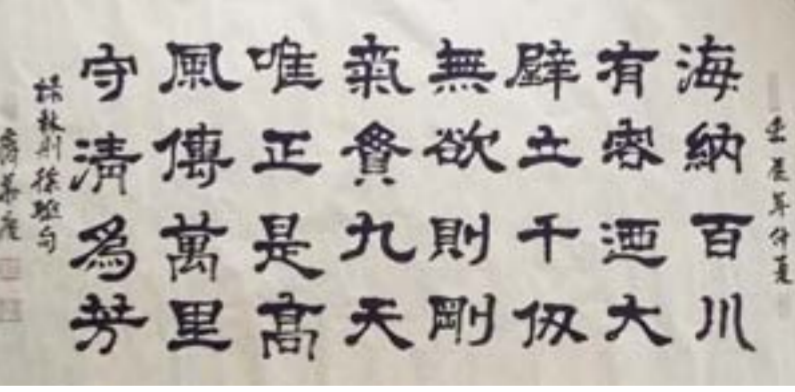 壬辰年仲夏
海納百川
有容迺大
壁立千仞
無欲則剛
氣貫九天
唯正是高
風傳萬里
守清為芳
林則徐聯句